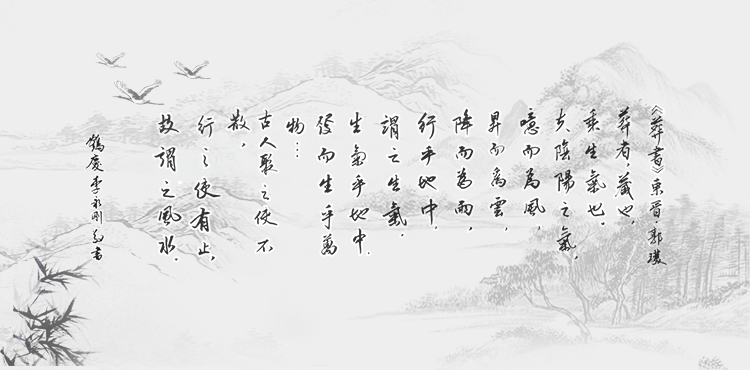 《葬書》東晉·郭璞
葬者,藏也,
乘生氣也。
夫陰陽之氣,
噫而為風,
昇而為雲,
降而為雨,
行乎地中,
謂之生氣。
生氣乎地中.
發而生乎萬
物…
古人聚之使不
散,
行之使有止,
故謂之風水.
鶴慶李永刚书